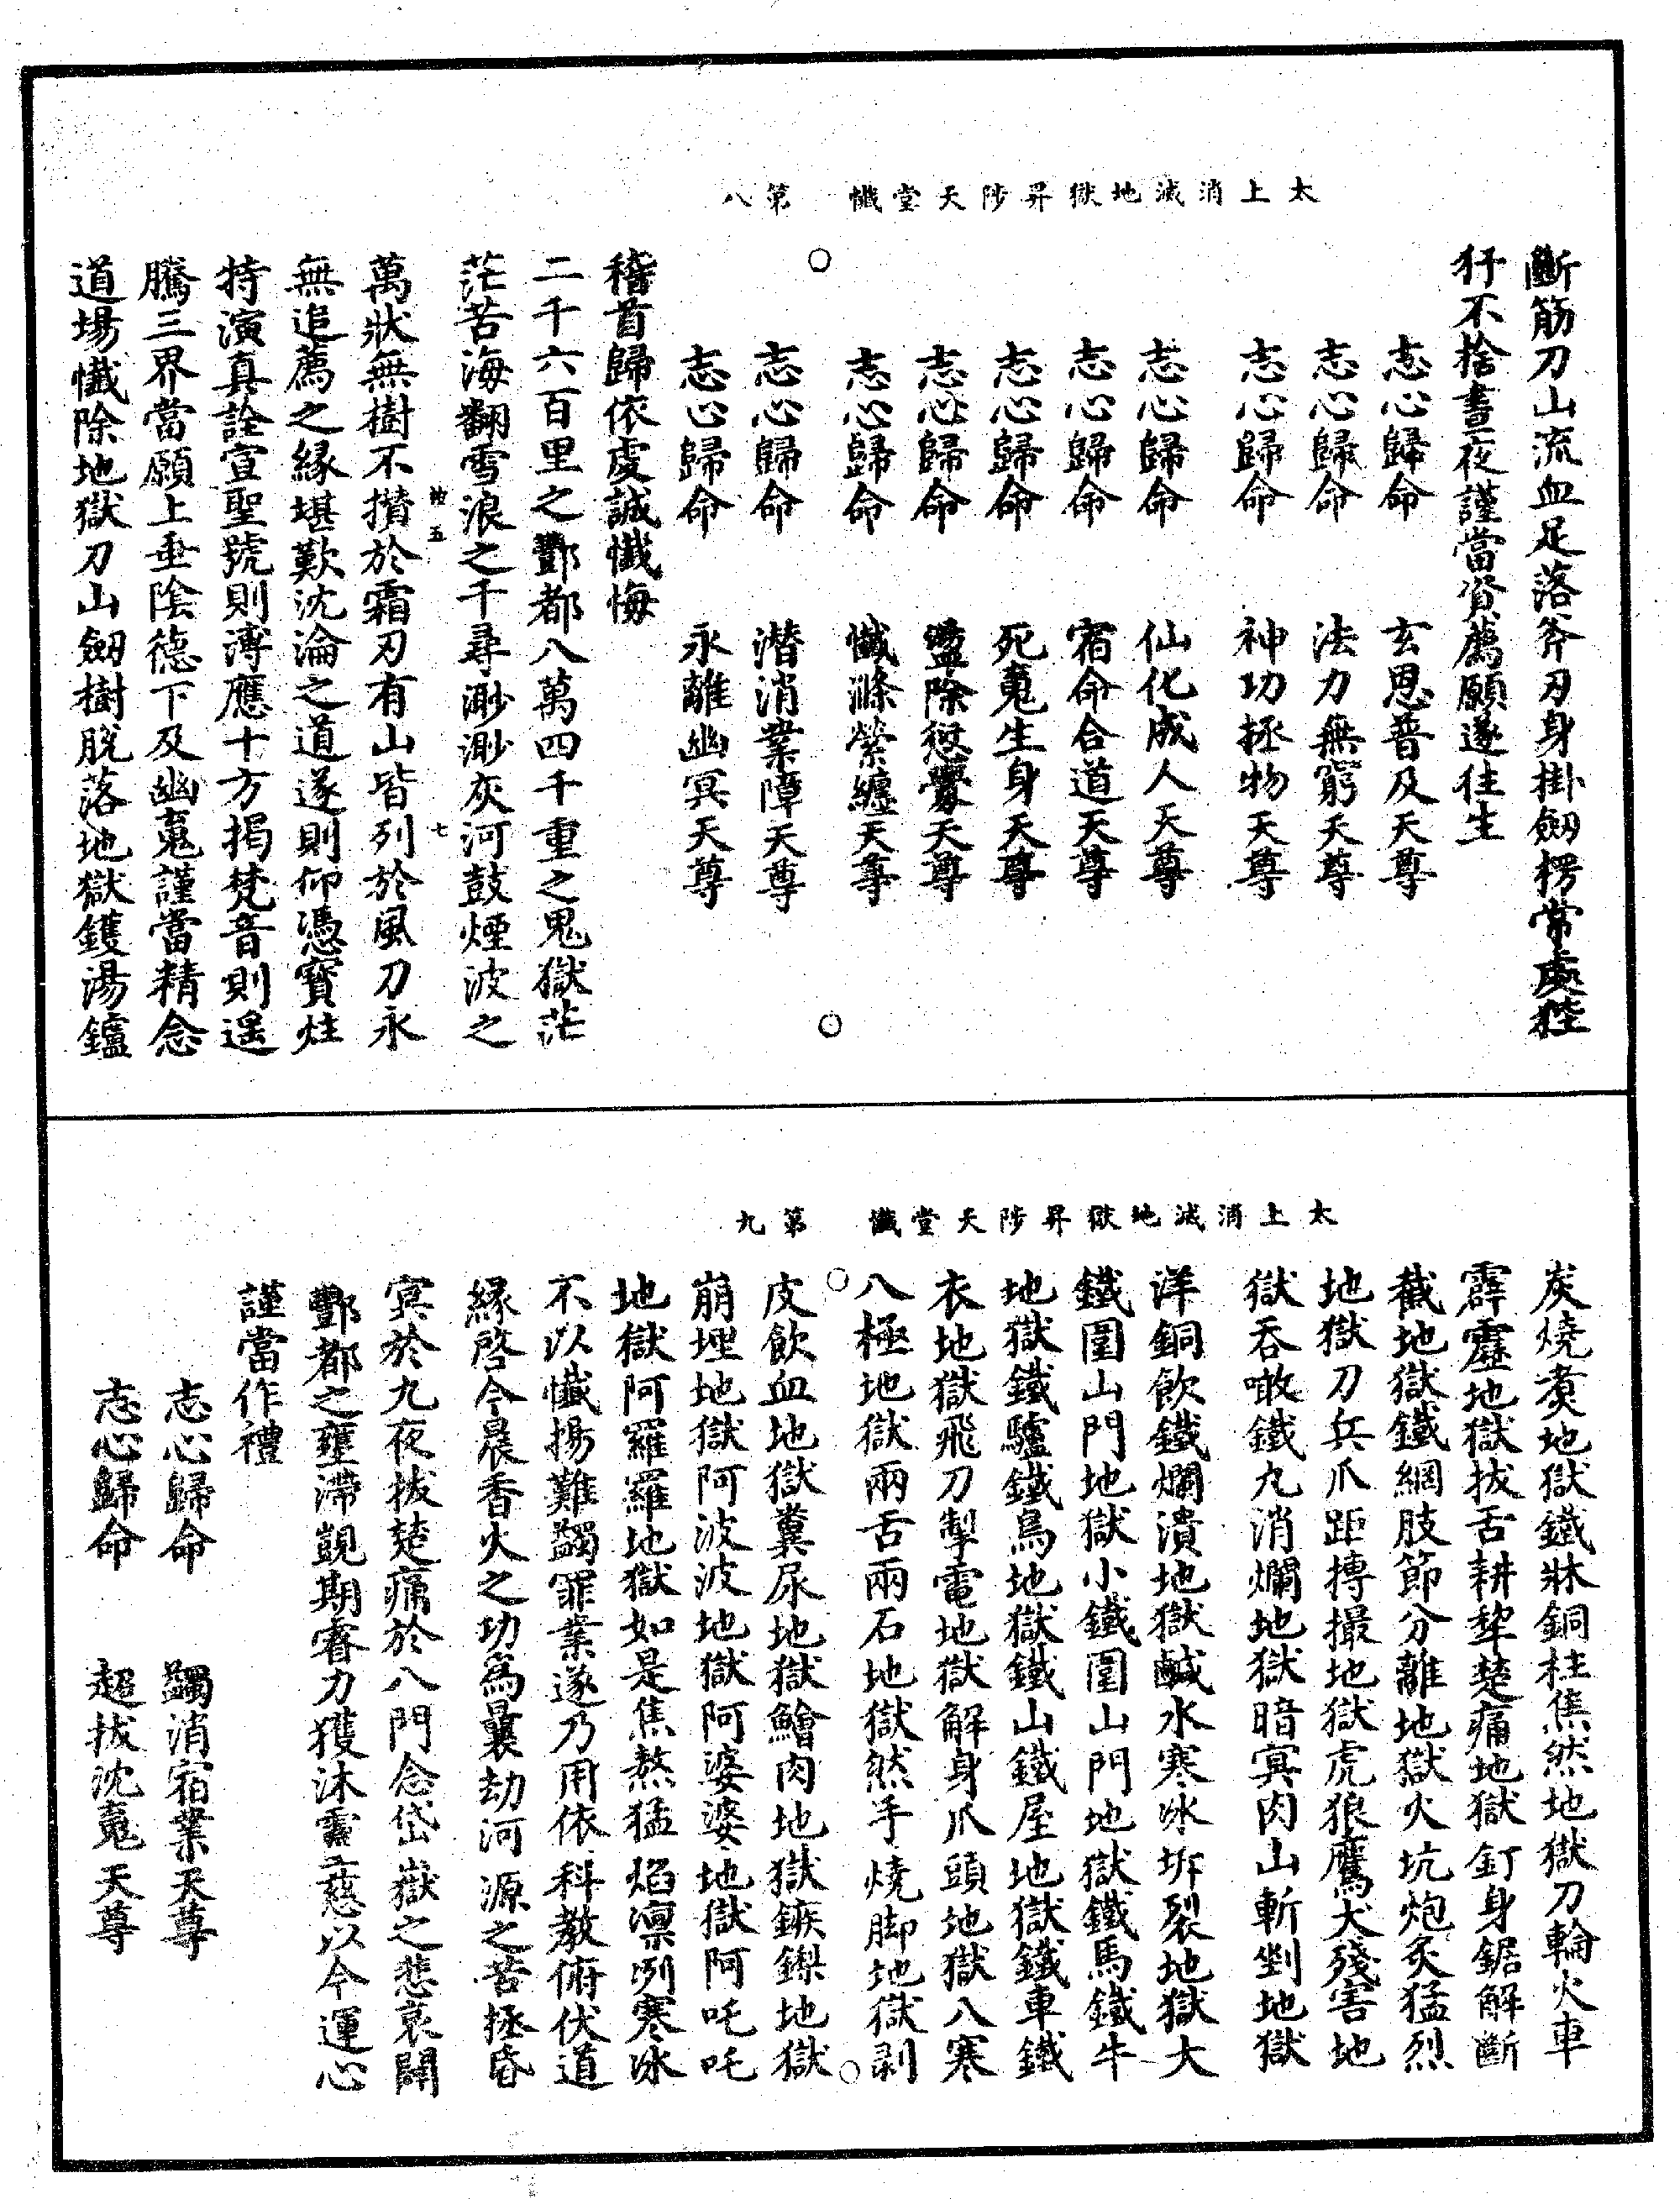 太上消滅地獄昇陟天堂懺　第八
斷筋刀山流血足落斧刃身掛劔楞常處狴
犴不捨晝夜謹當資薦願遂往生
志心歸命　玄恩普及天尊
志心歸命　法力無窮天尊
志心歸命　神功拯物天尊
志心歸命　仙化成人天尊
志心歸命　宿命合道天尊
志心歸命　死䰟生身天尊
志心歸命　盪除愆釁天尊
志心歸命　懺滌縈纏天尊
志心歸命　潜消業障天尊
志心歸命　永離幽冥天尊
稽首歸依虔誠懺悔
二千六百里之酆都八萬四千重之鬼獄茫
茫苦海翻雪浪之千尋渺渺灰河鼓煙波之
萬狀無樹不攢於霜刃有山皆列於風刀永
無追薦之緣堪歎沈淪之道遂則仰憑寳炷
持演真詮宣聖號則溥應十方揭梵音則遥
騰三界當願上垂陰德下及幽䰟謹當精念
道場懺除地獄刀山劔樹脫落地獄鑊湯鑪
太上消滅地獄昇陟天堂懺　第九
炭燒煑地獄鐵牀銅柱焦然地獄刀輪火車
霹靂地獄拔舌耕犂楚痛地獄釘身鋸解斷
截地獄鐵網肢節分離地獄火坑炮炙猛烈
地獄刀兵爪距摶撮地獄虎狼鷹犬殘害地
獄吞噉鐵丸消爛地獄暗冥肉山斬剉地獄
洋銅飲鐵爛潰地獄鹹水寒冰坼裂地獄大
鐵圍山門地獄小鐵圍山門地獄鐵馬鐵牛
地獄鐵驢鐵鳥地獄鐵山鐵屋地獄鐵車鐵
衣地獄飛刀掣電地獄解身爪頭地獄八寒
八極地獄兩舌兩石地獄然手燒脚地獄剥
皮飲血地獄糞尿地獄鱠肉地獄鏃鏁地獄
崩埋地獄阿波波地獄阿婆婆地獄阿吒吒
地獄阿羅羅地獄如是焦熬猛焰凛冽寒冰
不以懺揚難蠲罪業遂乃用依科教俯伏道
緣啓今晨香火之功為曩劫河源之苦拯昏
冥於九夜拔楚痛於八門念岱嶽之悲哀開
酆都之壅滯覬期睿力獲沐靈慈以今運心
謹當作禮
志心歸命　蠲消宿業天尊
志心歸命　超拔沈䰟天尊